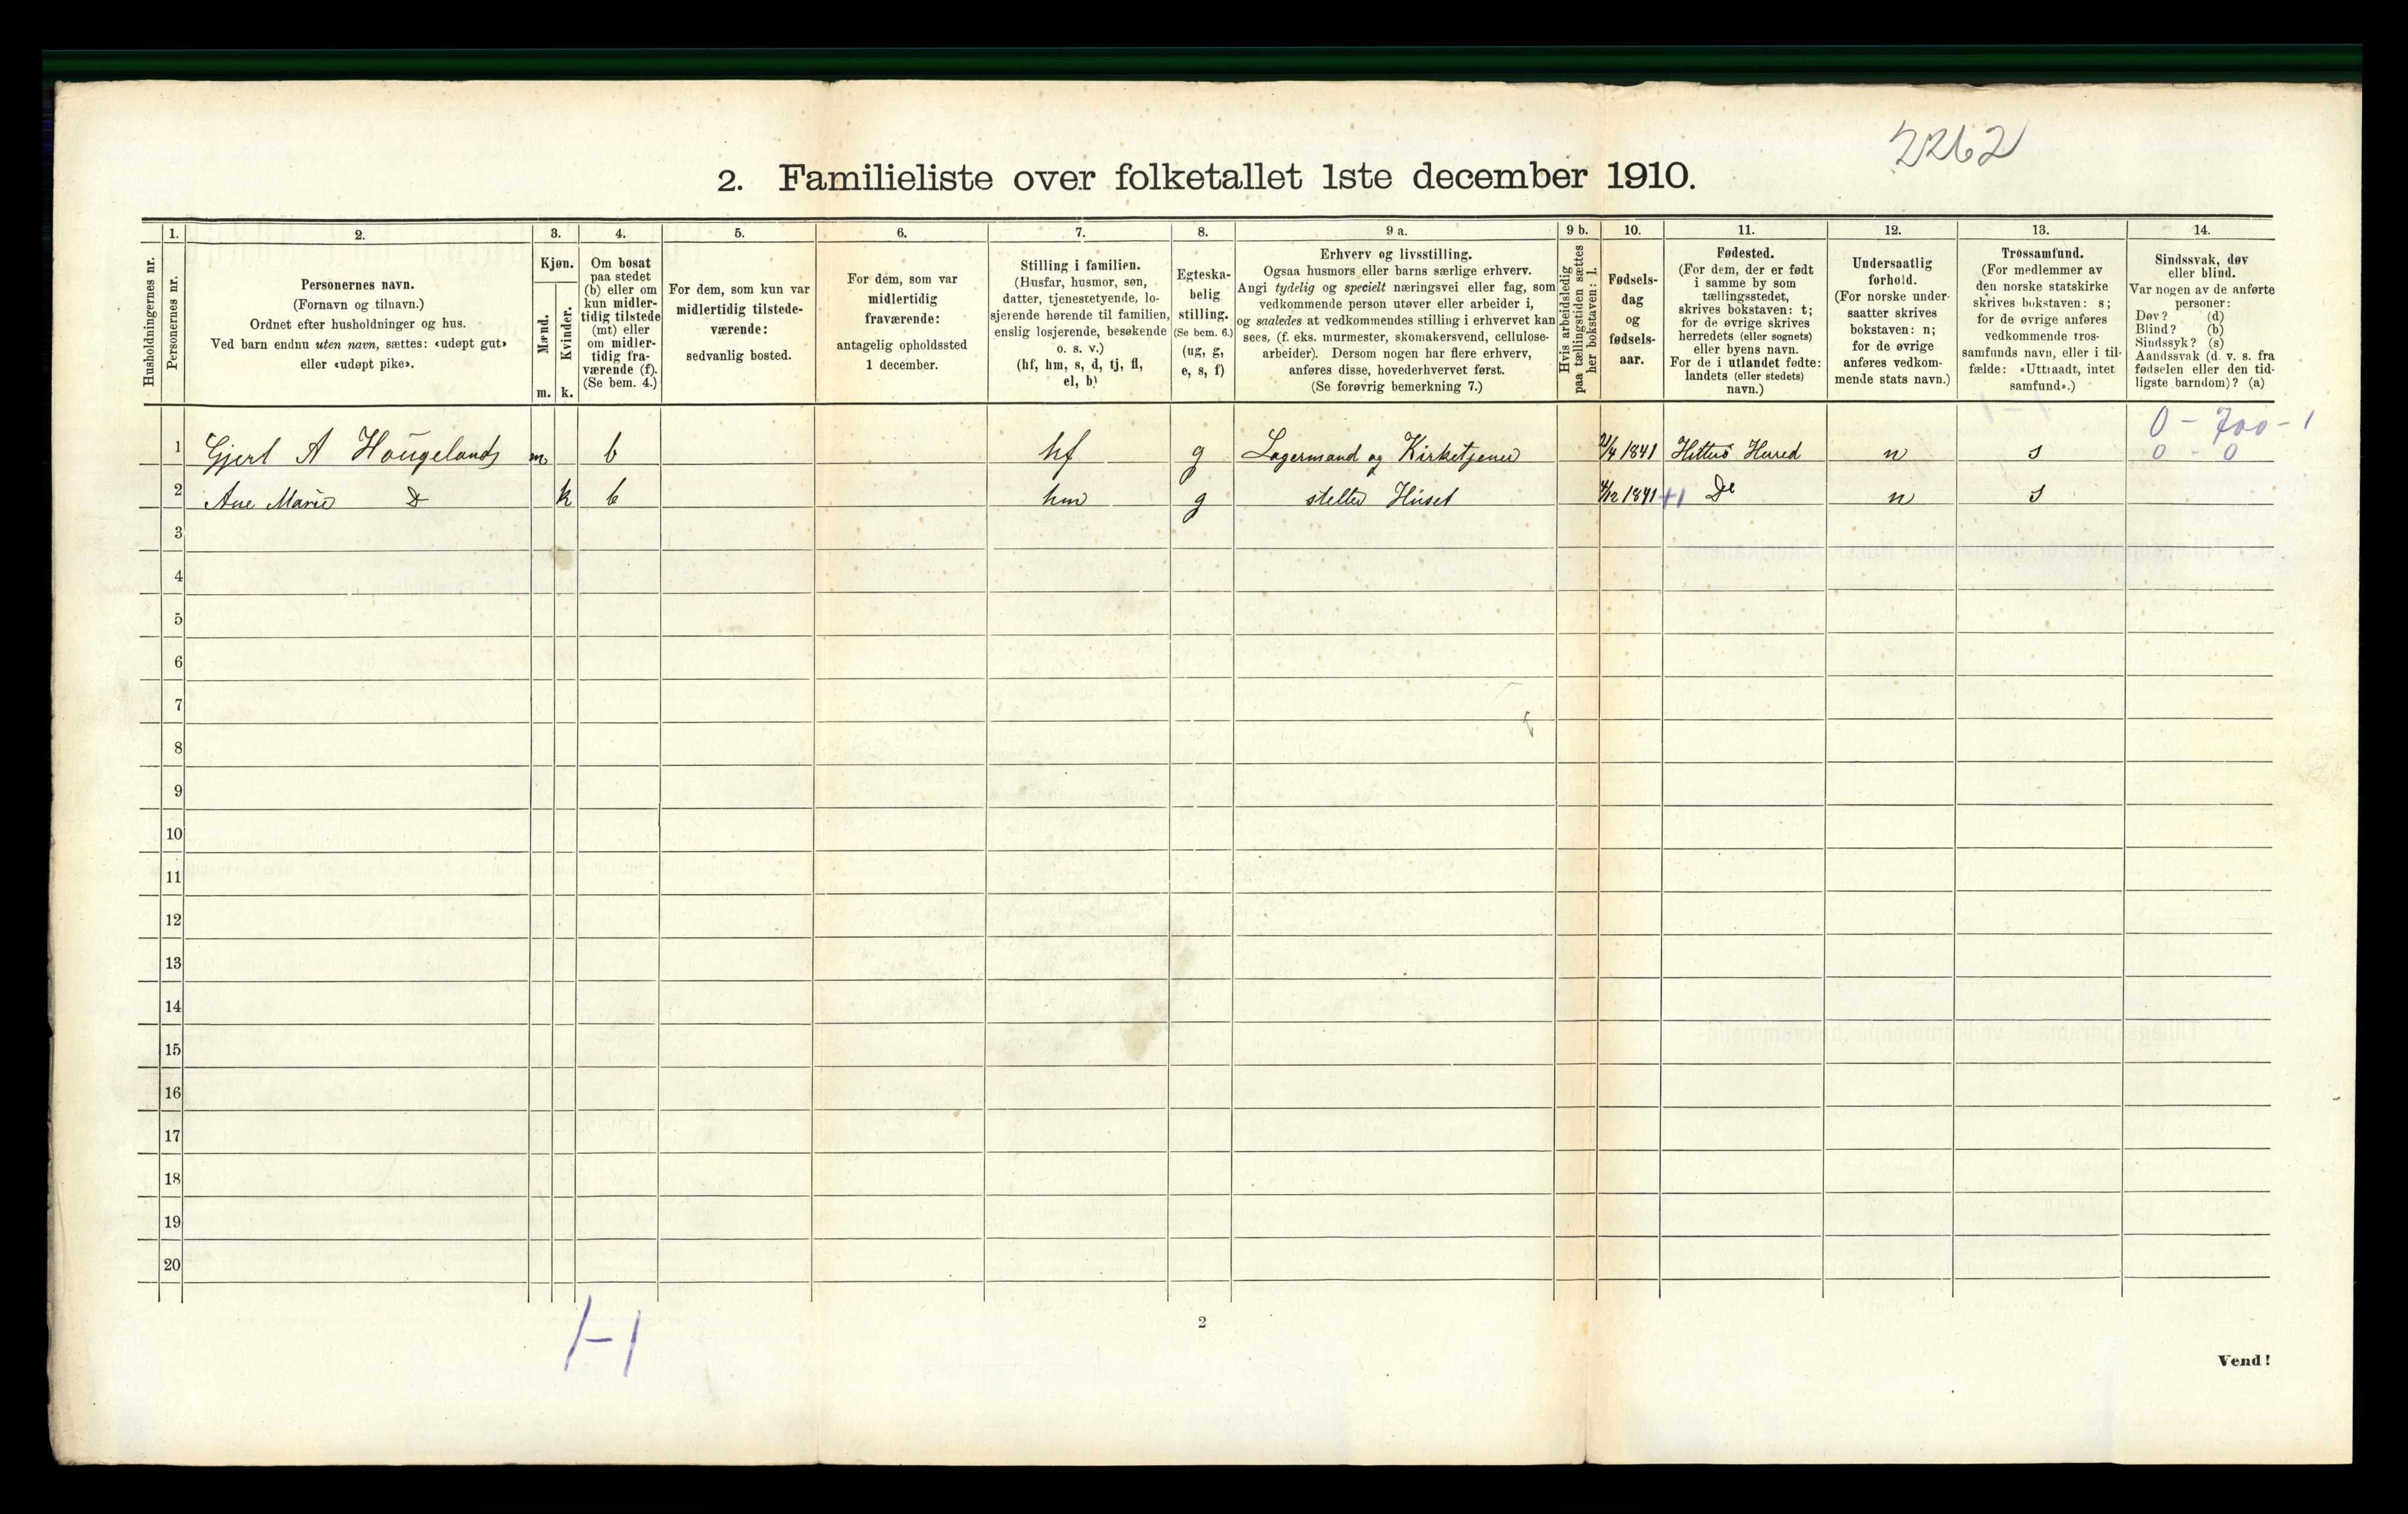 2262
2. Familieliste over folketallet 1ste december 1910.
Husholdningernes nr.
1.
Personernes nr.
2.
Personernes navn.
(Fornavn og tilnavn.)
Ordnet efter husholdninger og hus.
Ved barn endnu uten navn, sættes: «udøpt gut»
eller «udøpt pike».
3.
Kjøn.
Mænd.
Kvinder.
m. k.
4.
Om bosat
paa stedet
(b) eller om
kun midler-
tidig tilstede
(mt) eller
om midler-
tidig fra-
værende (f).
(Se bem. 4.)
5.
For dem, som kun var
midlertidig tilstede-
værende:
sedvanlig bosted.
6.
For dem, som var
midlertidig
fraværende:
antagelig opholdssted
1 december.
7.
Stilling i familien.
(Husfar, husmor, søn,
datter, tjenestetyende, lo-
sjerende hørende til familien,
enslig losjerende, besøkende
o. s. v.)
(hf, hm, s, d, tj, fl,
el, b)
8.
Egteska-
belig
stilling.
(Se bem. 6.)
(ug, g,
e, s, f)
9 a.
Erhverv og livsstilling.
Ogsaa husmors eller barns særlige erhverv.
Angi tydelig og specielt næringsvei eller fag, som
vedkommende person utøver eller arbeider i,
og saaledes at vedkommendes stilling i erhvervet kan
sees, (f. eks. murmester, skomakersvend, cellulose-
arbeider). Dersom nogen har flere erhverv,
anføres disse, hovederhvervet først.
(Se forøvrig bemerkning 7.)
9 b.
Hvis arbeidsledig
paa tællingstiden sættes
her bokstaven: l.
10.
Fødsels-
dag
og
fødsels-
aar.
11.
Fødested.
(For dem, der er født
i samme by som
tællingsstedet,
skrives bokstaven: t;
for de øvrige skrives
herredets (eller sognets)
eller byens navn.
For de i utlandet fødte:
landets (eller stedets)
navn.)
12.
Undersaatlig
forhold.
(For norske under-
saatter skrives
bokstaven: n;
for de øvrige
anføres vedkom-
mende stats navn.)
13.
Trossamfund.
(For medlemmer av
den norske statskirke
skrives bokstaven: s;
for de øvrige anføres
vedkommende tros-
samfunds navn, eller i til-
fælde: «Uttraadt, intet
samfund».)
14.
Sindssvak, døv
eller blind.
Var nogen av de anførte
personer:
Døv? (d)
Blind? (b)
Sindssyk? (s)
Aandssvak (d. v. s. fra
fødselen eller den tid-
ligste barndom)? (a)
0 - 700 - 1
1 Gjert A Hougeland m b hf g Lagermand og Kirketjener /4 1841 Hitterö Herred n s 0 - 0
2 Ane Marie D k b hm g steller Huset 4/12 1841 +1 Do n s
3
4
5
6
7
8
9
10
11
12
13
14
15
16
17
18
19
20
1-1
2
Vend!